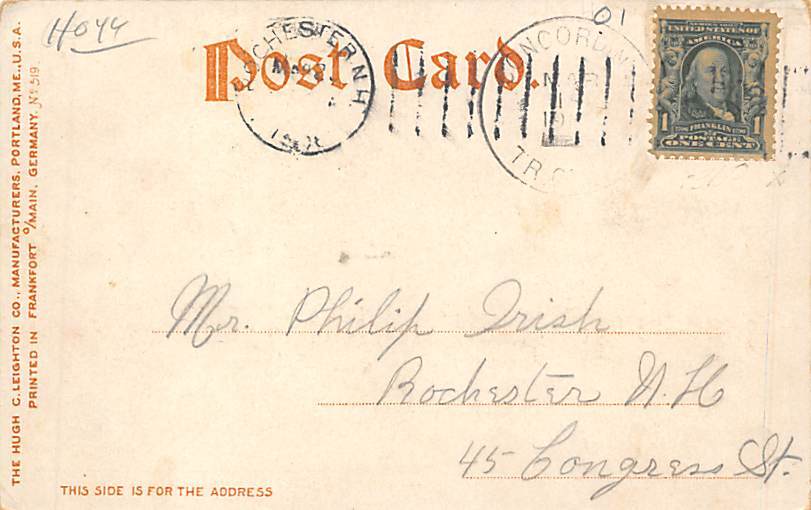 Hoyt
01
Post Card.
ROCHESTER N.H.
CONCORD
UNITED STATES OF
AMERICA
1 FRANKLIN 1
POSTAGE
ONE CENT
Mr. Philip Irish
Rochester N.H
45 Congress St.
THIS SIDE IS FOR THE ADDRESS
THE HUGH C. LEIGHTON CO., MANUFACTURERS, PORTLAND, ME., U.S.A.
PRINTED IN FRANKFORT O/MAIN, GERMANY. No 519